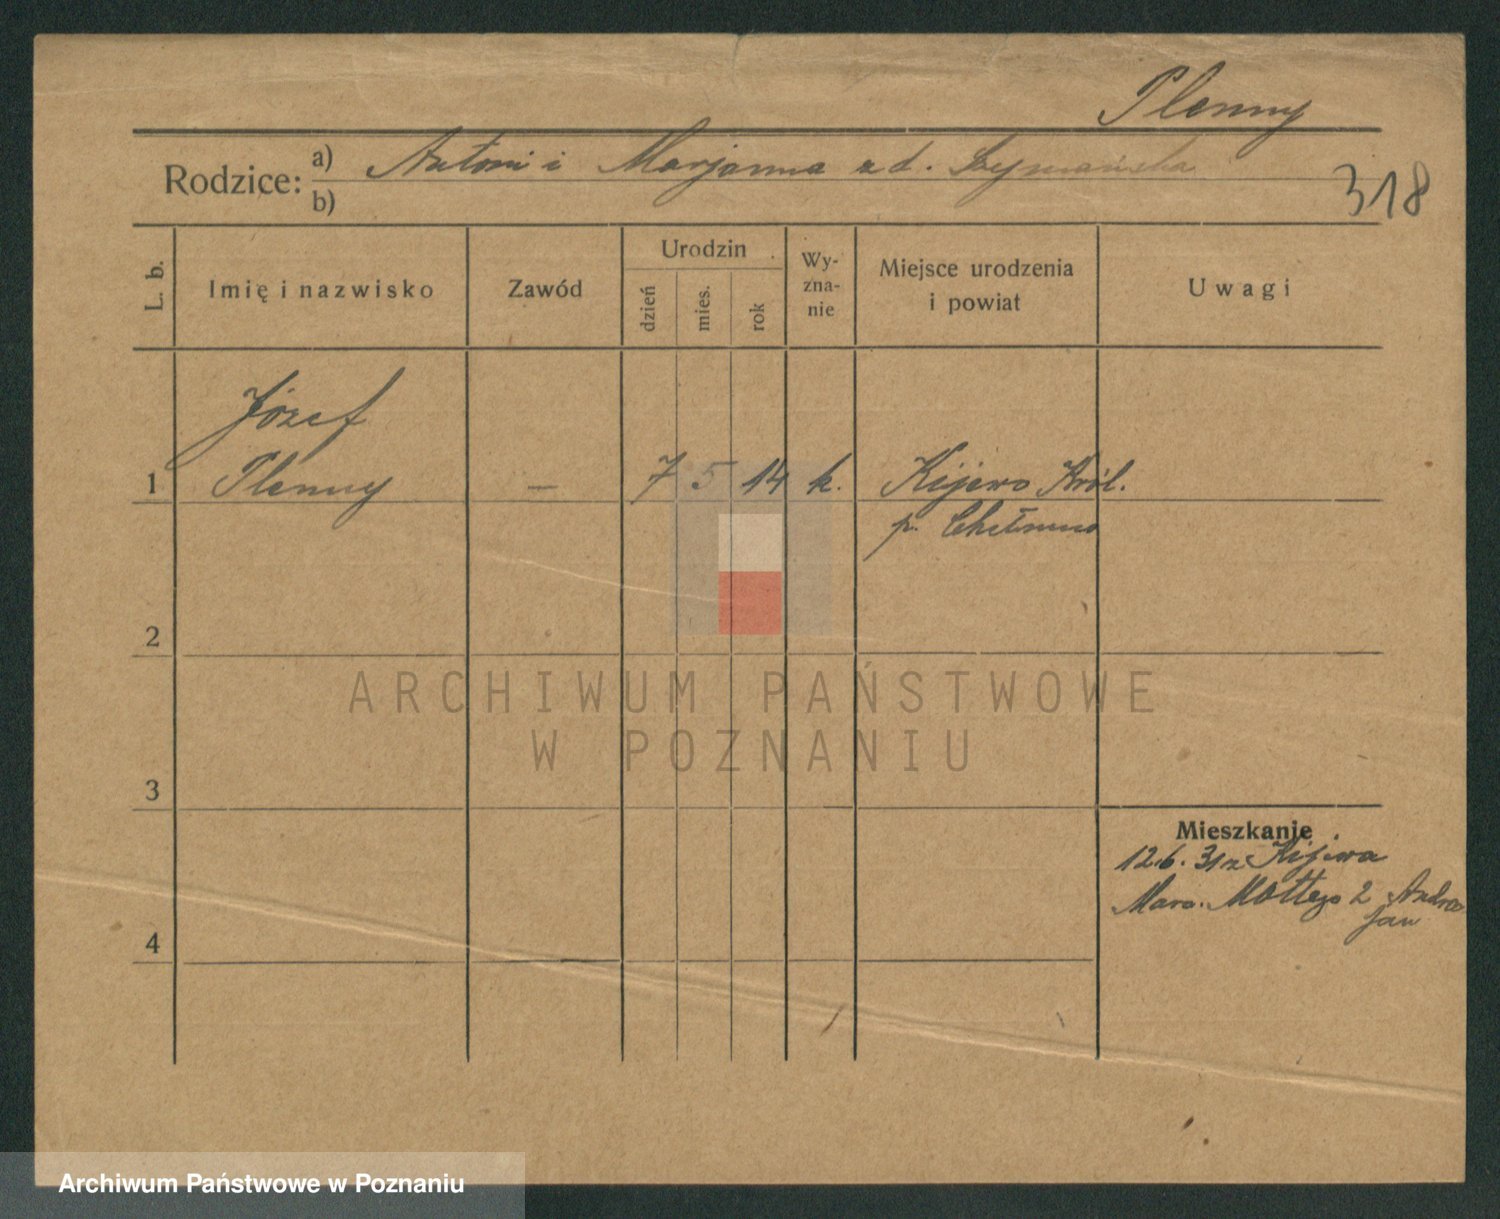 Plenny
Rodzice: a) Antoni i Marjanna z d. Szymańska
b)
318
L. b.
Imię i nazwisko
Zawód
Urodzin
dzień
mies.
rok
Wy-
zna-
nie
Miejsce urodzenia
i powiat
Uwagi
Józef
1 Plenny — 7 5 14 k. Kijewo Król.
p. Chełmno
2
ARCHIWUM PAŃSTWOWE
W POZNANIU
3
Mieszkanie
12.6.31 z Kijewa
Marc. Mottego 2
Jan
4
Archiwum Państwowe w Poznaniu